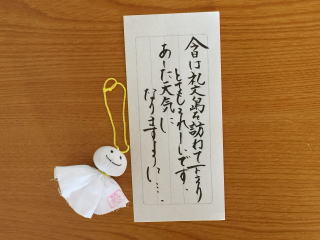 今日は礼文島を訪ねて下さり
とてもうれしいです。
あした天気に
なりますように‥‥.